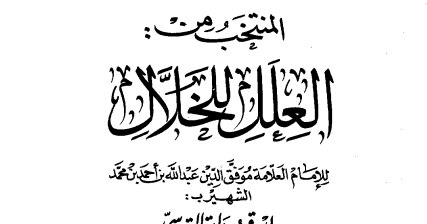 المنتخب من:
العِلَلِ لِلخَلَّالِ
للإمام العلامة موفق الدين عبد الله بن أحمد بن محمد
الشهير ب: